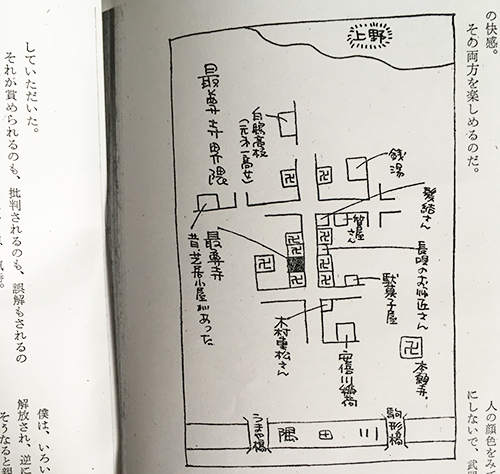 の快感。
その両方を楽しめるのだ。
人の顔色をみ
にしないで、武
上野
最尊寺界隈
白鴎高校
(元不一高女)
銭湯
髪結さん
質屋さん
長唄のお師匠さん
駄菓子屋
卍
卍
卍
卍
卍
卍
卍
卍
卍
卍
本龍寺
最尊寺
昔、芝居小屋があった
木村重松さん
安信川稲荷
うまや橋
隅田川
駒形橋
していただいた。
それが賞められるのも、批判されるのも、誤解もされるの
僕は、いろい
解放され、逆に
そうなると親